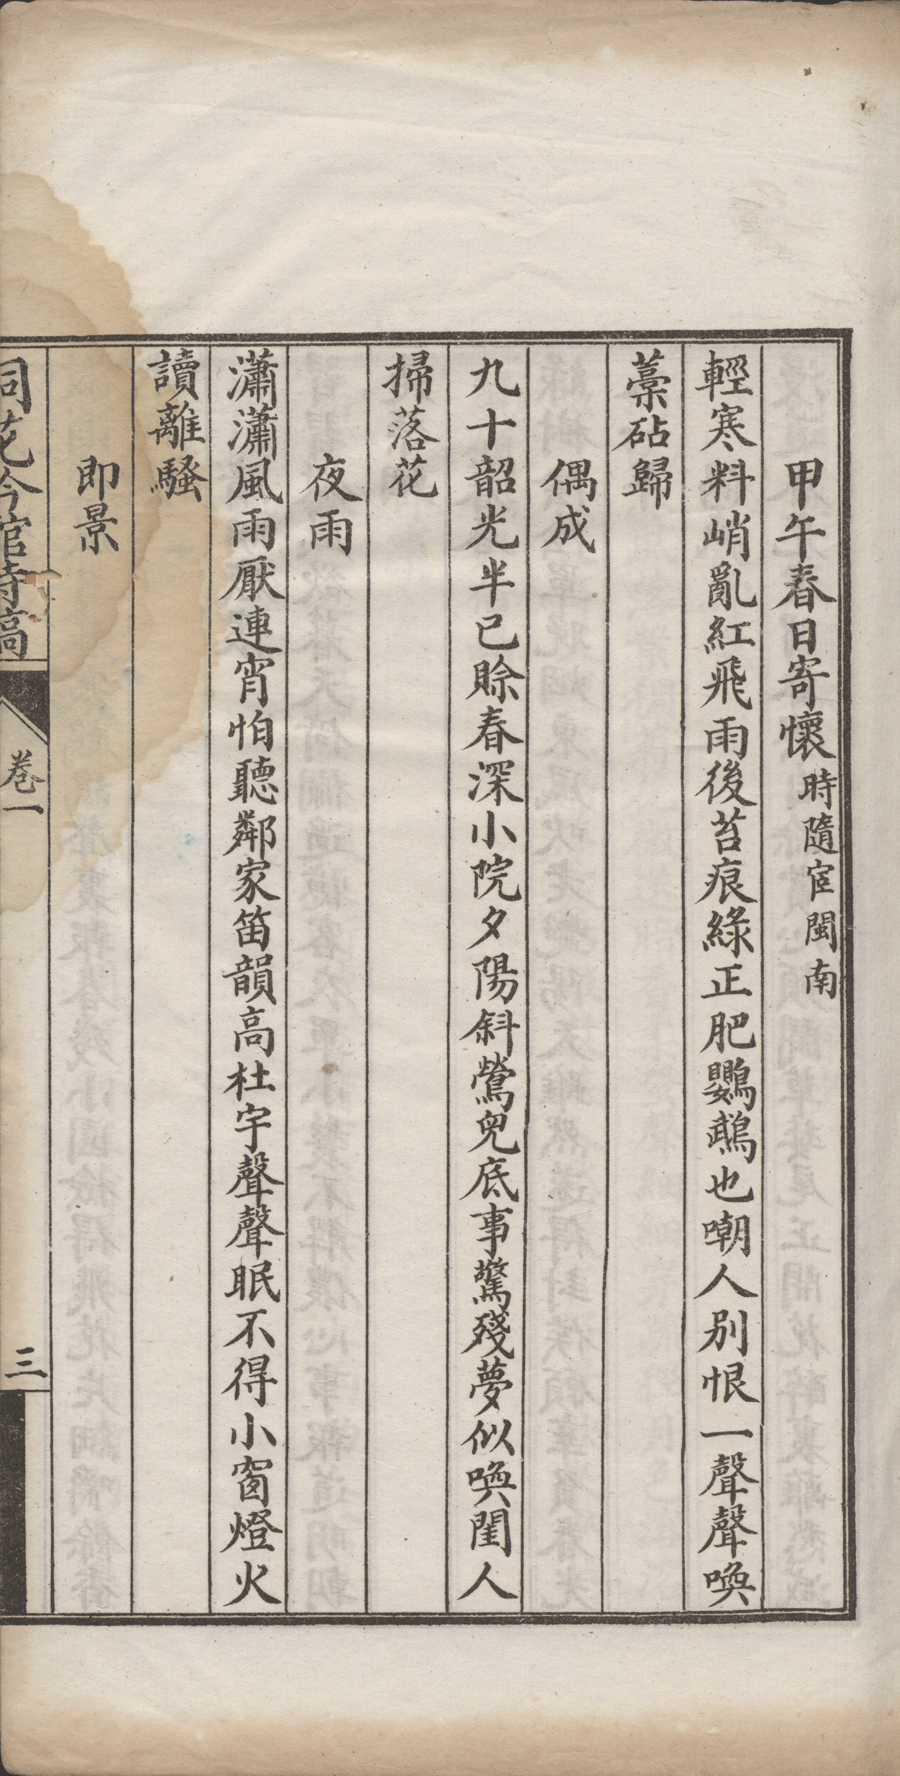 甲午春日寄懷時隨宦閩南
輕寒料峭亂紅飛雨後苔痕綠正肥鸚鵡也嘲人別恨一聲聲喚
藁砧歸
偶成
九十韶光半已賒春深小院夕陽斜鶯兒底事驚殘夢似喚閨人
掃落花
夜雨
瀟瀟風雨厭連宵怕聽鄰家笛韻高杜宇聲聲眠不得小窗燈火
讀離騷
即景
桐花吟館詩稿
卷一
三